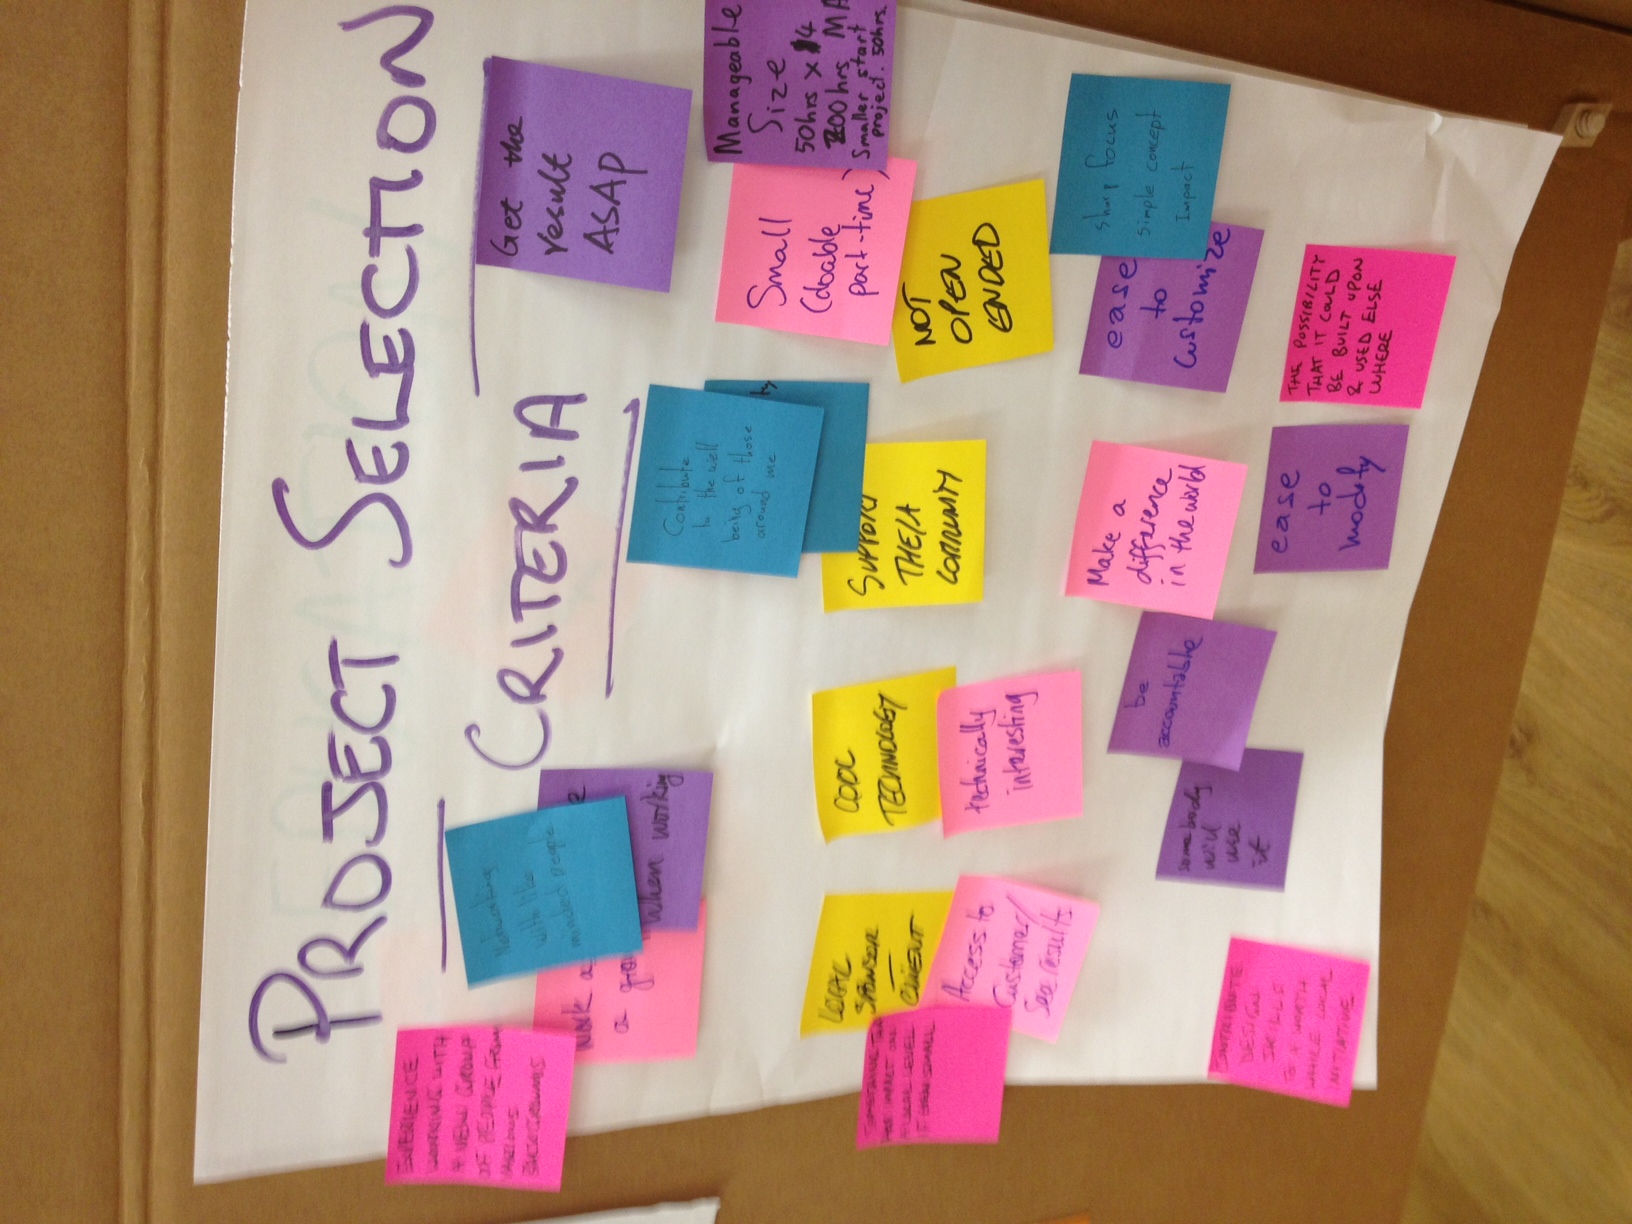 PROJECT SELECTION
CRITERIA
EXPERIENCE
WORKING WITH
A NEW GROUP
OF PEOPLE FROM
VARIOUS
BACKGROUNDS
Networking
with like
minded people
Work a
a gro
e
When working
Get the
result
ASAP
Contribute
to the well
being of those
around me
ty
Small
(doable
part-time)
Manageable
Size
50hrs x 4
200hrs MA
Smaller start
project. 50hrs.
LOCAL
SPONSOR
CLIENT
COOL
TECHNOLOGY
SUPPORT
THE/A
COMMUNITY
NOT
OPEN
ENDED
SOMETHING THA
HAS IMPACT ON
A LOCAL LEVEL
IF EVEN SMALL
Access to
Customer/
See results
technically
interesting
Make a
difference
in the world
ease
to
customize
sharp focus
simple concept
Impact
be
accountable
somebody
will
use
it
CONTRIBUTE
DESIGN
SKILLS
TO A WORTH
WHILE LOCAL
INITIATIVE
ease
to
modify
THE POSSIBILITY
THAT IT COULD
BE BUILT UPON
& USED ELSE
WHERE